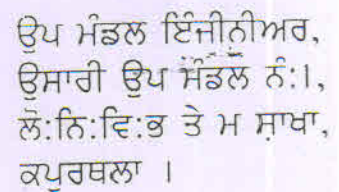 ਉਪ ਮੰਡਲ ਇੰਜੀਨੀਅਰ,
ਉਸਾਰੀ ਉਪ ਮੰਡਲ ਨੰ:।,
ਲੋ:ਨਿ:ਵਿ:ਭ ਤੇ ਮ ਸ਼ਾਖਾ,
ਕਪੂਰਥਲਾ ।